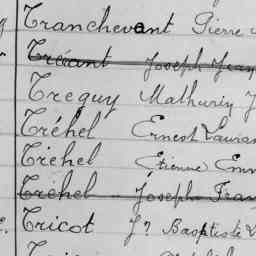 Tranchevant Pierre
Tréant Joseph Jean
Treguy Mathurin J
Tréhel Ernest Lauran
Tréhel Étienne Emm
Tréhel Joseph Fran
Tricot Jn Baptiste